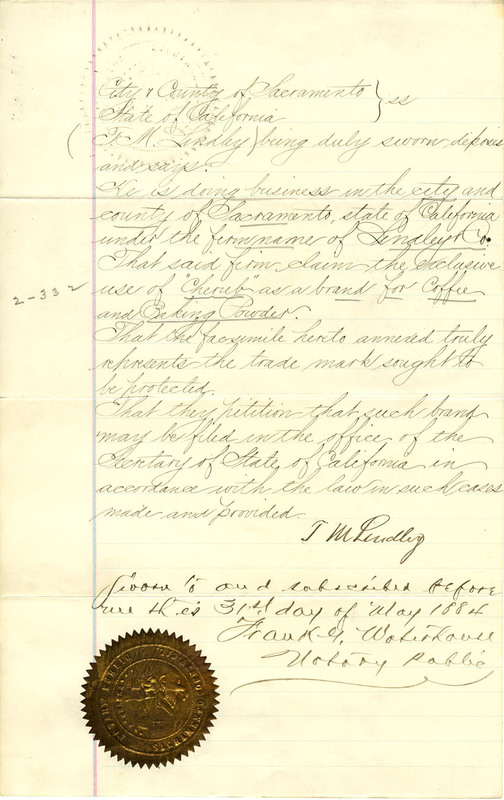 City & County of Sacramento } ss
State of California
( T. M. Lindley ) being duly sworn deposes
and says.
He is doing business in the city and
county of Sacramento, state of California
under the firm name of Lindley & Co.
That said firm claim the exclusive
use of Cherub as a brand for Coffee
and Baking Powder.
2-332
That the facsimile hereto annexed truly
represents the trade mark sought to
be protected.
That they petition that such brand
may be filed in the office of the
Secretary of State of California in
accordance with the law in such cases
made and provided.
T M Lindley
Sworn to and subscribed before
me this 31st day of May 1884
Frank G. Waterhouse
Notary Public